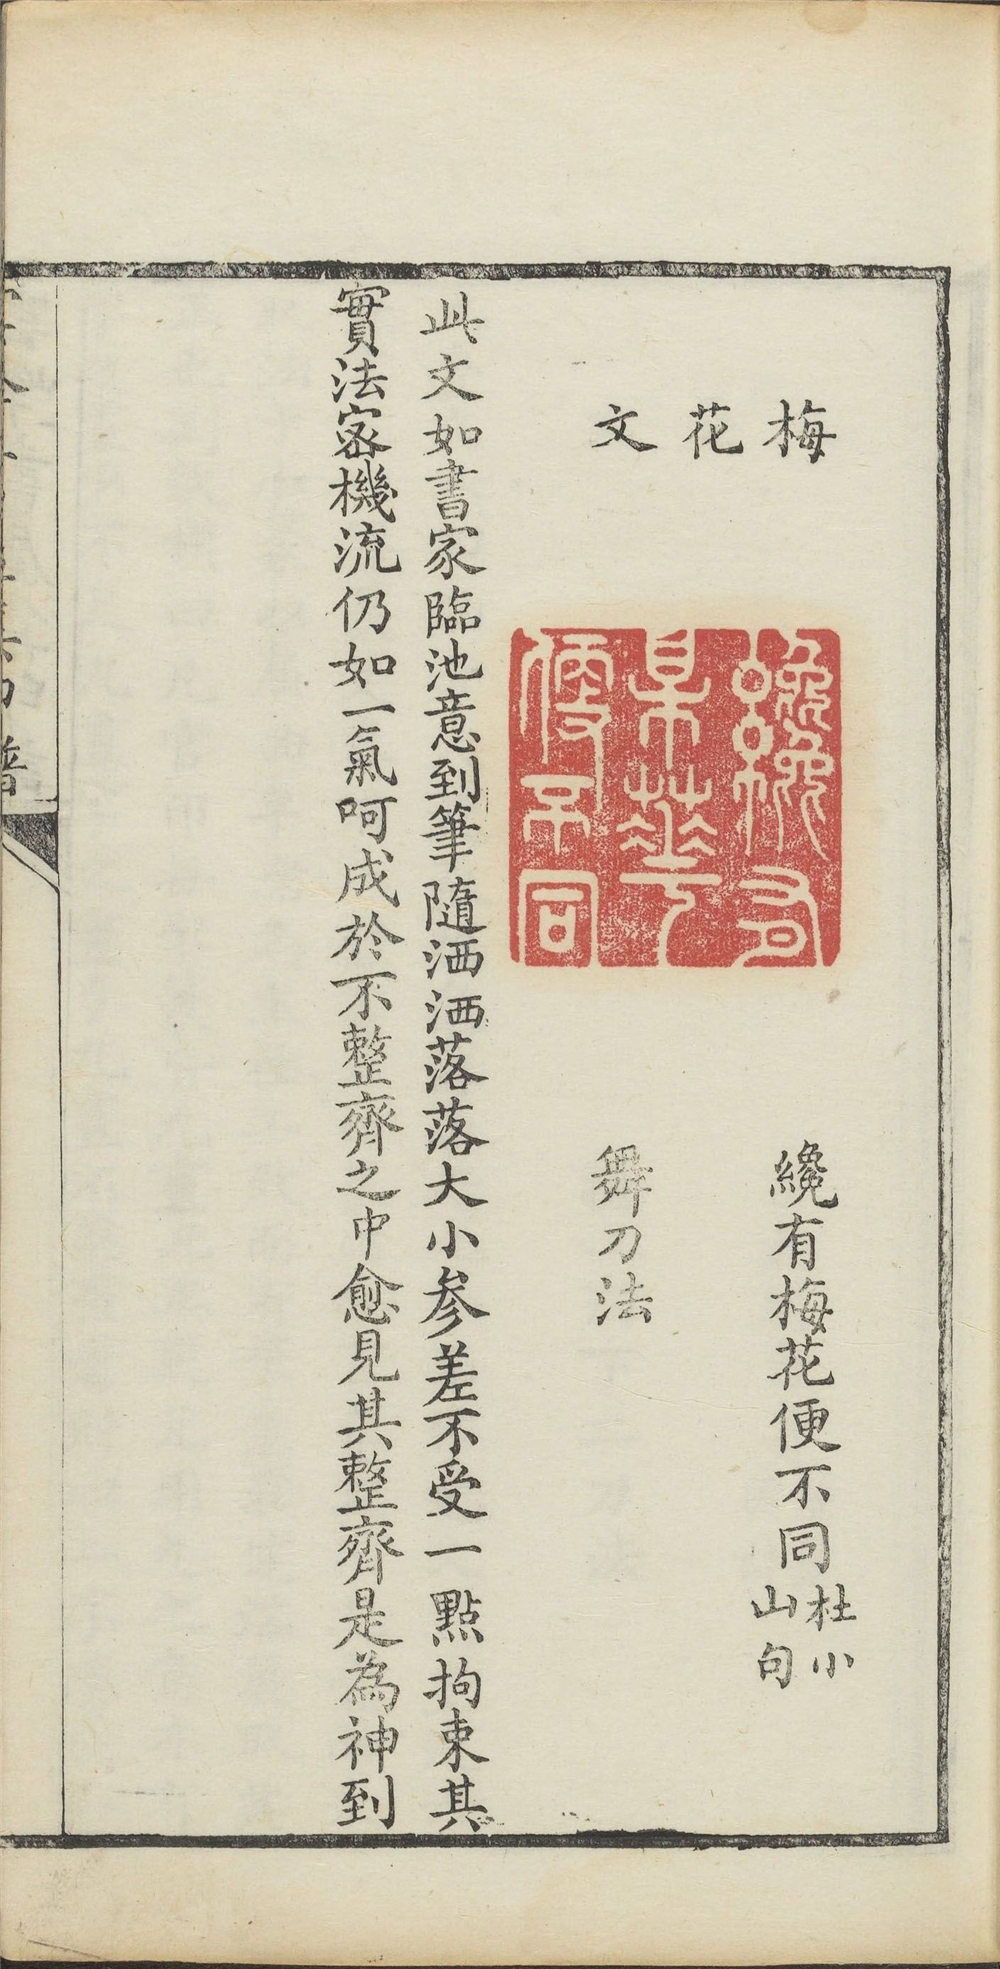 梅花文
纔有某華便不同
纔有梅花便不同
杜小山句
舞刀法
此文如書家臨池意到筆隨洒洒落落大小參差不受一點拘束其
實法密機流仍如一氣呵成於不整齊之中愈見其整齊是為神到
譜